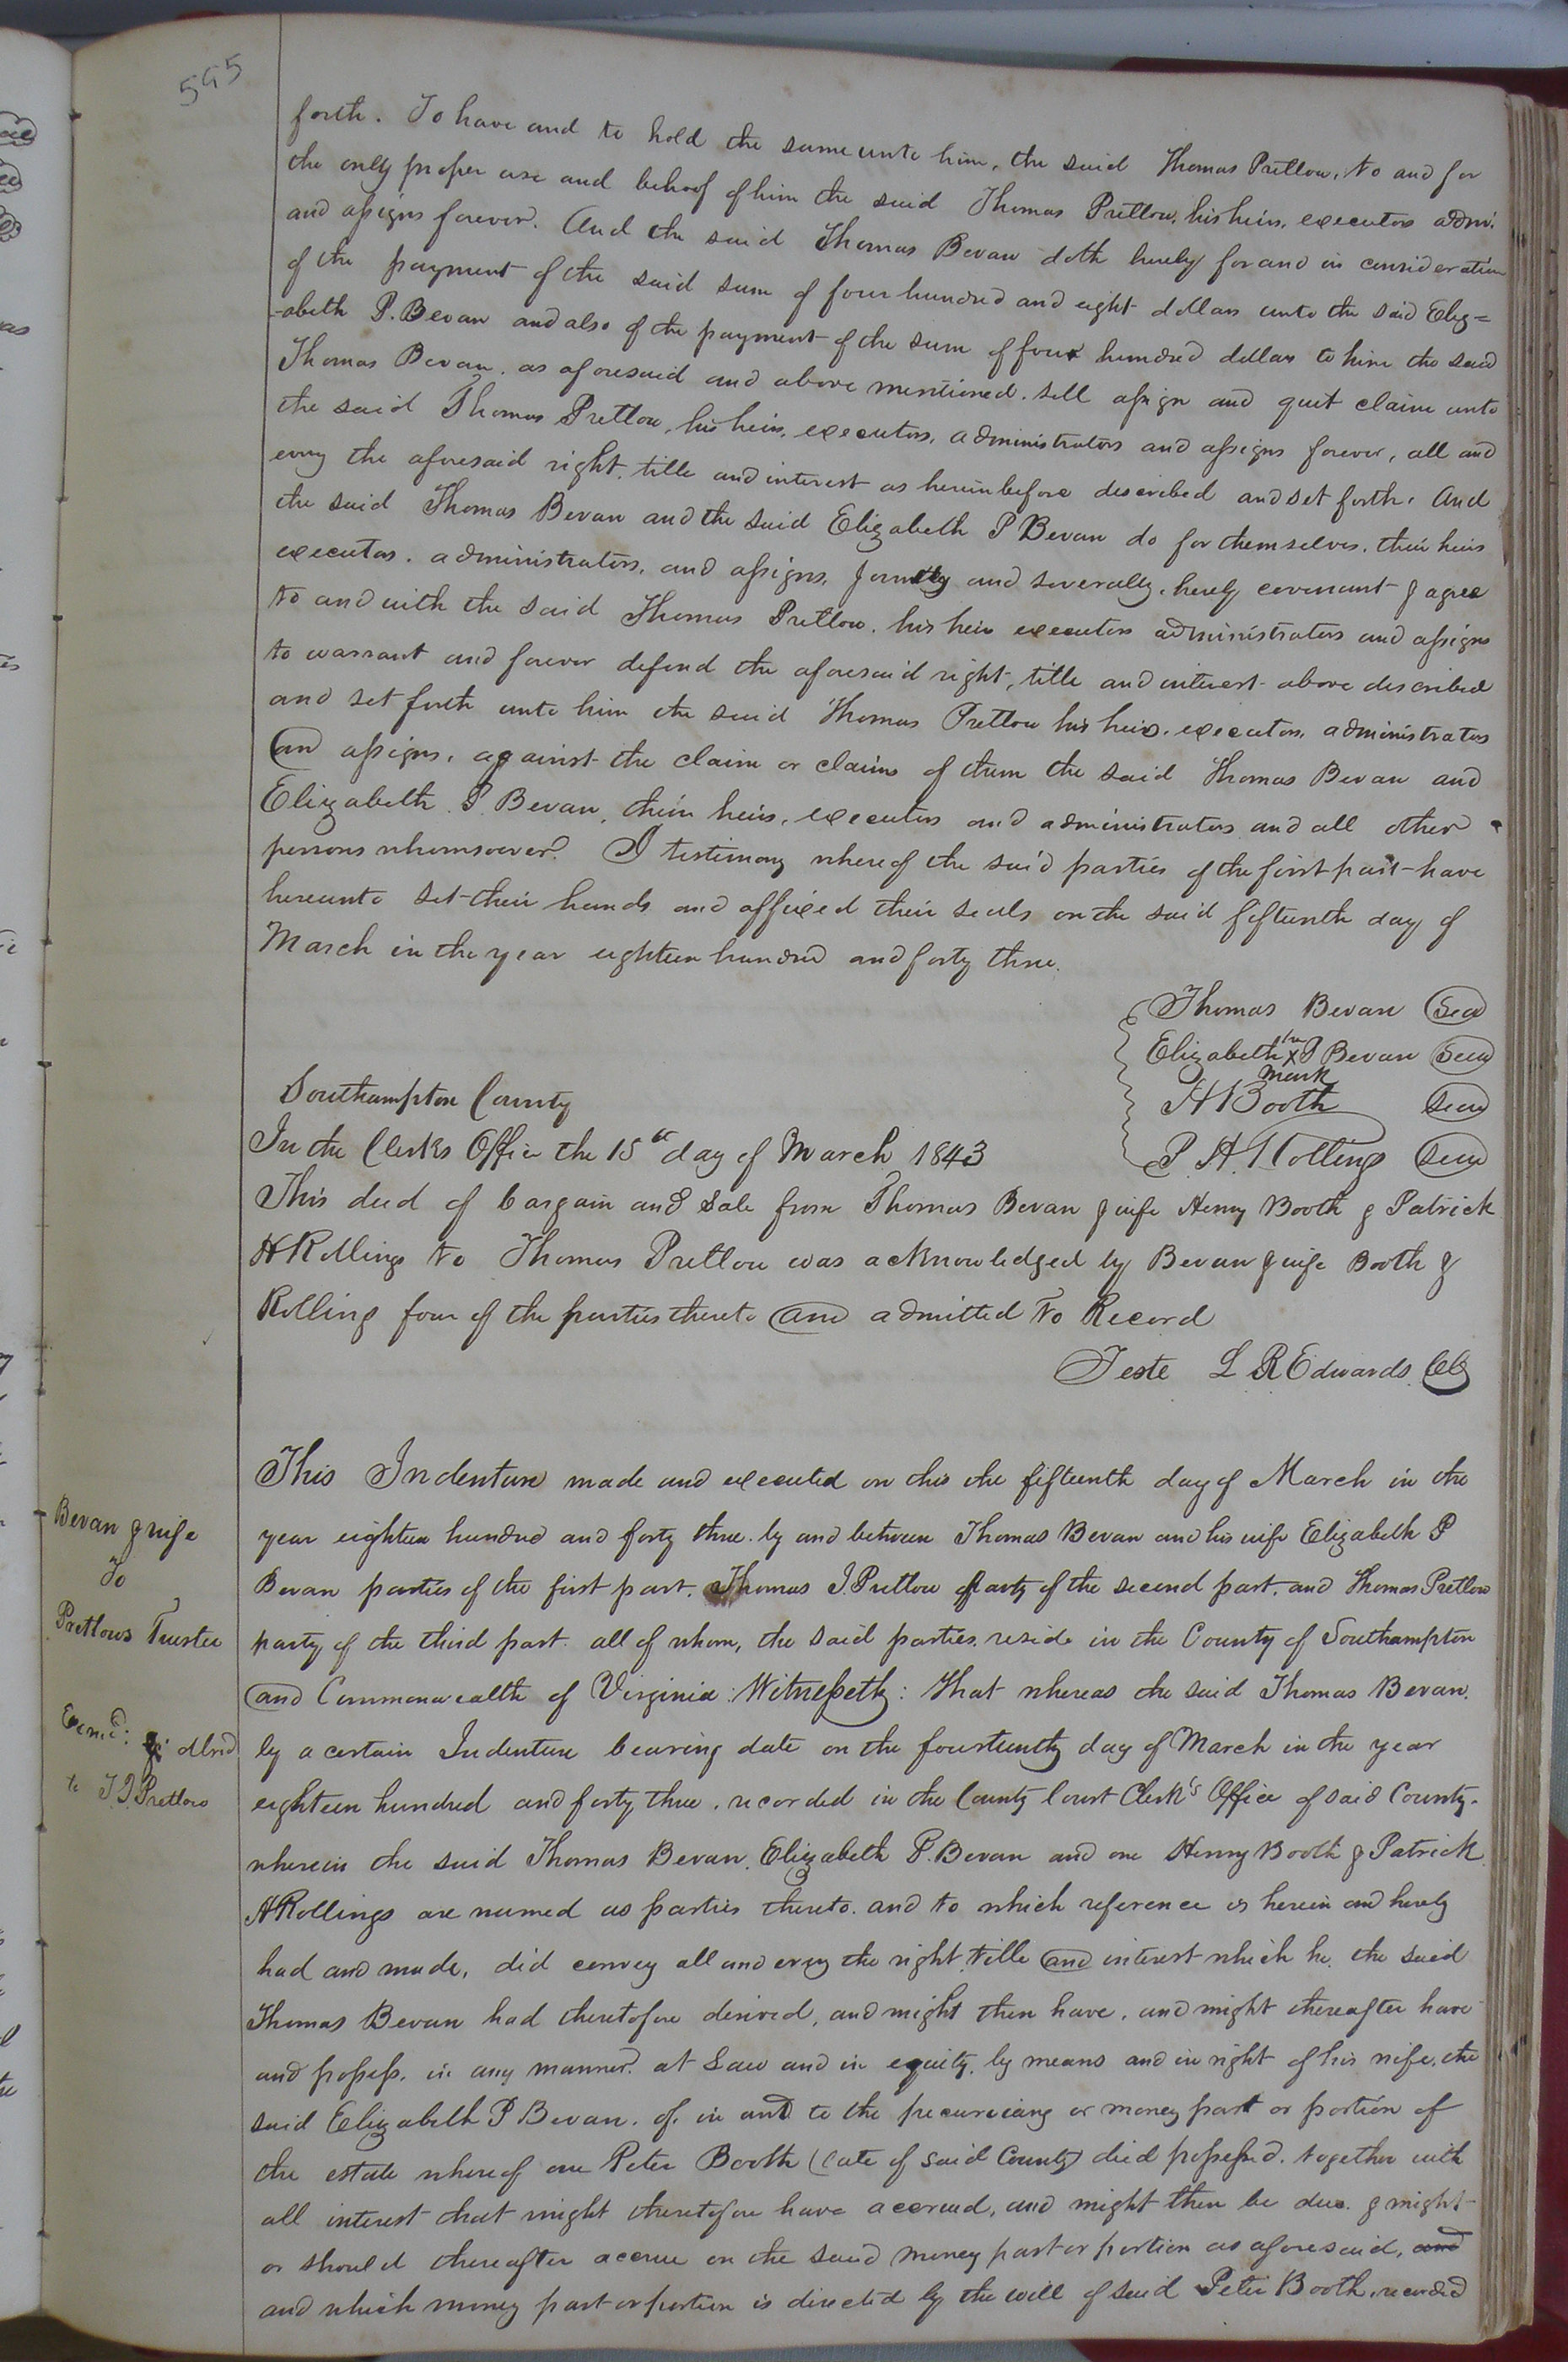 595
forth. To have and to hold the same unto him, the said Thomas Pretlow, to and for
the only proper use and behoof of him the said Thomas Pretlow, his heirs, executors admr.
and assigns forever. And the said Thomas Bevan doth hereby for and in consideration
of the payment of the said sum of four hundred and eight dollars unto the said Eliz=
-abeth P. Bevan and also of the payment of the sum of four hundred dollars to him the said
Thomas Bevan, as aforesaid and above mentioned, sell assign and quit claim unto
the said Thomas Pretlow, his heirs, executors, administrators and assigns forever, all and
every the aforesaid right, title and interest as hereinbefore described and set forth. And
the said Thomas Bevan and the said Elizabeth P Bevan do for themselves, their heirs
executors, administrators, and assigns, jointly and severally, hereby covenant & agree
to and with the said Thomas Pretlow, his heirs executors administrators and assigns
to warrant and forever defend the aforesaid right, title and interest above described
and set forth unto him the said Thomas Pretlow his heirs, executors, administrators
and assigns, against the claim or claims of them the said Thomas Bevan and
Elizabeth P. Bevan, their heirs, executors and administrators and all other
persons whomsoever. I testimony whereof the said parties of the first part have
hereunto set their hands and affixed their seals on the said fifteenth day of
March in the year eighteen hundred and forty three.
Thomas Bevan Seal
Elizabeth her X P Bevan Seal
mark
H Booth Seal
P. H. Rollings Seal
Southampton County
In the Clerks Office the 15th day of March 1843
This deed of bargain and sale from Thomas Bevan & wife Henry Booth & Patrick
H Rollings to Thomas Pretlow was acknowledged by Bevan & wife Booth &
Rolling four of the parties thereto and admitted to Record
Teste L R Edwards Clk
Bevan & wife
To
Pretlows Trustee
Exmd: & dlvd
to T J Pretlow
This Indenture made and executed on this the fifteenth day of March in the
year eighteen hundred and forty three. by and between Thomas Bevan and his wife Elizabeth P
Bevan parties of the first part. Thomas J. Pretlow party of the second part. and Thomas Pretlow
party of the third part. all of whom, the said parties, reside in the County of Southampton
and Commonwealth of Virginia: Witnesseth: That whereas the said Thomas Bevan.
by a certain Indenture bearing date on the fourteenth day of March in the year
eighteen hundred and forty three, recorded in the County Court Clerk's Office of said County.
wherein the said Thomas Bevan, Elizabeth P. Bevan and one Henry Booth & Patrick
H Rollings are named as parties thereto. and to which reference is herein and hereby
had and made, did convey all and every the right title and interest which he, the said
Thomas Bevan had theretofore derived, and might then have, and might thereafter have
and possess, in any manner, at Law and in equity, by means and in right of his wife, the
said Elizabeth P Bevan, of, in and to the pecuniary or money part or portion of
the estate whereof one Peter Booth (late of said County) died possessed, together with
all interest that might theretofore have accrued, and might then be due, & might
or should thereafter accrue on the said money part or portion as aforesaid, and
and which money part or portion is directed by the will of said Peter Booth, recorded